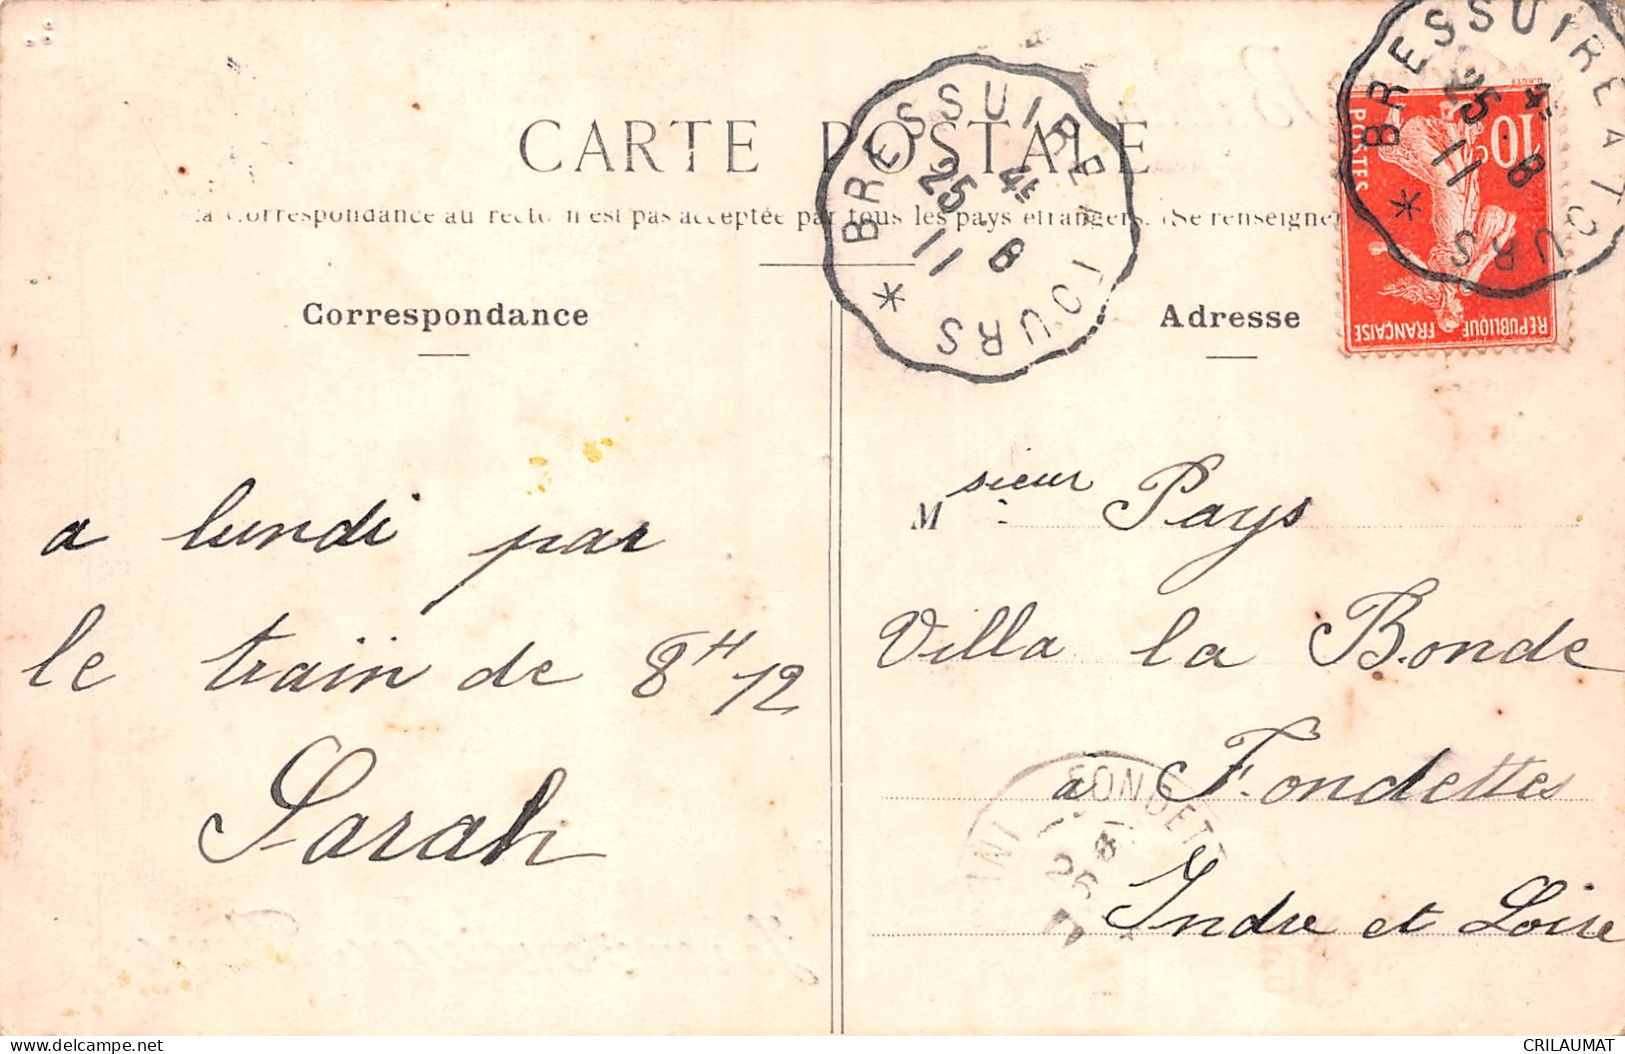 CARTE POSTALE
la Correspondance au recto n'est pas acceptée par tous les pays étrangers. (Se renseigner
Correspondance
Adresse
BRESSUIRE A TOURS *
25 4E
11 8
BRESSUIRE A TOURS *
25 4E
11 8
POSTES
10c
REPUBLIQUE FRANÇAISE
a lundi par
le train de 8H12
Sarah
Msieur Pays
Villa la Bonde
à Fondettes
Indre et Loire
FONDETT
CRILAUMAT